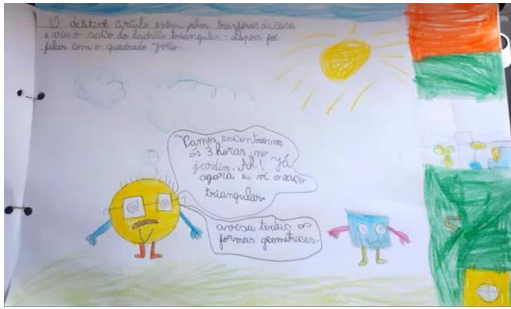 O detetive círculo entrou pelas traseiras da casa
e viu o saco do ladrão triangular. Depois foi
falar com o quadrado João.
Vamos encontrarmos
ás 3 horas no
jardim. Ah! já
agora eu vi o saco
triangular
avisa todas as
formas geometricas.